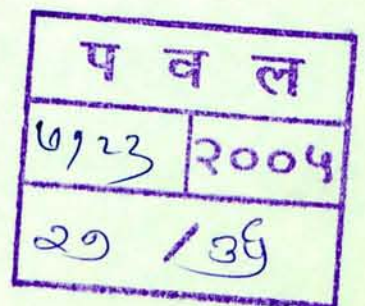 प व ल
७१२३ २००५
२१ / ३५